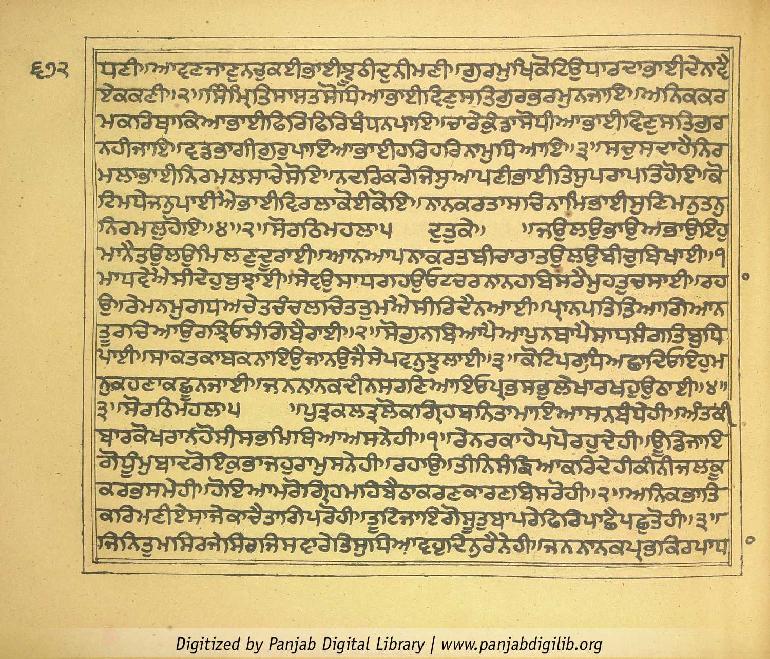 ੬੭੨
ਧਣੀ॥ਆਵਣਜਾਣੁਨਚੁਕਈਭਾਈਝੂਠੀਦੁਨੀਮਣੀ॥ਗੁਰਮੁਖਿਕੋਟਿਉਧਾਰਦਾਭਾਈਦੇਨਾਵੈ
ਏਕਕਣੀ॥੨॥ਸਿੰਮ੍ਰਿਤਿਸਾਸਤਸੋਧਿਆਭਾਈਵਿਣੁਸਤਿਗੁਰਭਰਮੁਨਜਾਇ॥ਅਨਿਕਕਰ
ਮਕਰਿਥਾਕਿਆਭਾਈਫਿਰਿਫਿਰਿਬੰਧਨਪਾਇ॥ਚਾਰੇਕੁੰਡਾਸੋਧੀਆਭਾਈਵਿਣੁਸਤਿਗੁਰ
ਨਹੀਜਾਇ॥ਵਡਭਾਗੀਗੁਰੁਪਾਇਆਭਾਈਹਰਿਹਰਿਨਾਮੁਧਿਆਇ॥੩॥ਸਚੁਸਦਾਹੈਨਿਰ
ਮਲਾਭਾਈਨਿਰਮਲਸਾਚੇਸੋਇ॥ਨਦਰਿਕਰੇਜਿਸੁਆਪਣੀਭਾਈਤਿਸੁਪਰਾਪਤਿਹੋਇ॥ਕੋ
ਟਿਮਧੇਜਨੁਪਾਈਐਭਾਈਵਿਰਲਾਕੋਈਕੋਇ॥ਨਾਨਕਰਤਾਸਚਿਨਾਮਿਭਾਈਸੁਣਿਮਨੁਤਨੁ
ਨਿਰਮਲੁਹੋਇ॥੪॥੨॥ਸੋਰਠਿਮਹਲਾ੫ ਦੁਤੁਕੇ॥ ॥ਜਉਲਉਭਾਉਅਭਾਉਇਹੁ
ਮਾਨੈਤਉਲਉਮਿਲਣੁਦੂਰਾਈ॥ਆਨਆਪਨਾਕਰਤਬੀਚਾਰਾਤਉਲਉਬੀਚੁਬਿਖਾਈ॥੧
ਮਾਧਵੇਐਸੀਦੇਹੁਬੁਝਾਈ॥ਸੇਵਉਸਾਧਗਹਉਓਟਚਰਨਾਨਹਬਿਸਰੈਮੁਹਤੁਚਸਾਈ॥ਰਹ
ਉ॥ਰੇਮਨਮੁਗਧਅਚੇਤਚੰਚਲਚਿਤਤੁਮਐਸੀਰਿਦੈਨਆਈ॥ਪ੍ਰਾਨਪਤਿਤਿਆਗਿਆਨ
ਤੂਰਚਿਆਉਰਝਿਓਸੰਗਿਬੈਰਾਈ॥੨॥ਸੋਗੁਨਬਿਆਪੈਆਪੁਨਥਾਪੈਸਾਧਸੰਗਤਿਬੁਧਿ
ਪਾਈ॥ਸਾਕਤਕਾਬਕਨਾਇਉਜਾਨਉਜੈਸੇਪਵਨੁਝੁਲਾਈ॥੩॥ਕੋਟਿਪਰਾਧਅਛਾਦਿਓਇਹੁਮ
ਨੁਕਹਣਾਕਛੂਨਜਾਈ॥ਜਨਨਾਨਕਦੀਨਸਰਣਿਆਇਓਪ੍ਰਭਸਭੁਲੇਖਾਰਖਹੁਉਠਾਈ॥੪॥
੩॥ਸੋਰਠਿਮਹਲਾ੫ ॥ਪੁਤ੍ਰਕਲਤ੍ਰਲੋਕਗ੍ਰਿਹਬਨਿਤਾਮਾਇਆਸਨਬੰਧੇਹੀ॥ਅੰਤਕੀ
ਬਾਰਕੋਖਰਾਨਹੋਸੀਸਭਮਿਥਿਆਅਸਨੇਹੀ॥੧॥ਰੇਨਰਕਾਹੇਪਪੋਰਹੁਦੇਹੀ॥ਊਡਿਜਾਇ
ਗੋਧੂਮੁਬਾਦਰੋਇਕੁਭਾਜਹੁਰਾਮੁਸਨੇਹੀ॥ਰਹਾਉ॥ਤੀਨਿਸੰਙਿਆਕਰਿਦੇਹੀਕੀਨੀਜਲਕੂ
ਕਰਭਸਮੇਹੀ॥ਹੋਇਆਮਰੋਗ੍ਰਿਹਮਹਿਬੈਠਾਕਰਣਕਾਰਣਬਿਸਰੋਹੀ॥੨॥ਅਨਿਕਭਾਤਿ
ਕਰਿਮਣੀਏਸਾਜੇਕਾਚੈਤਾਗਿਪਰੋਹੀ॥ਤੂਟਿਜਾਇਗੋਸੂਤੁਬਾਪਰੇਫਿਰਿਪਾਛੈਪਛੁਤੋਹੀ॥੩॥
ਜਿਨਿਤੁਮਸਿਰਜੇਸਿਰਜਿਸਵਾਰੇਤਿਸੁਧਿਆਵਹੁਦਿਨੁਰੈਨੇਹੀ॥ਜਨਨਾਨਕਪ੍ਰਭਕਿਰਪਾਧ
Digitized by Panjab Digital Library | www.panjabdigilib.org